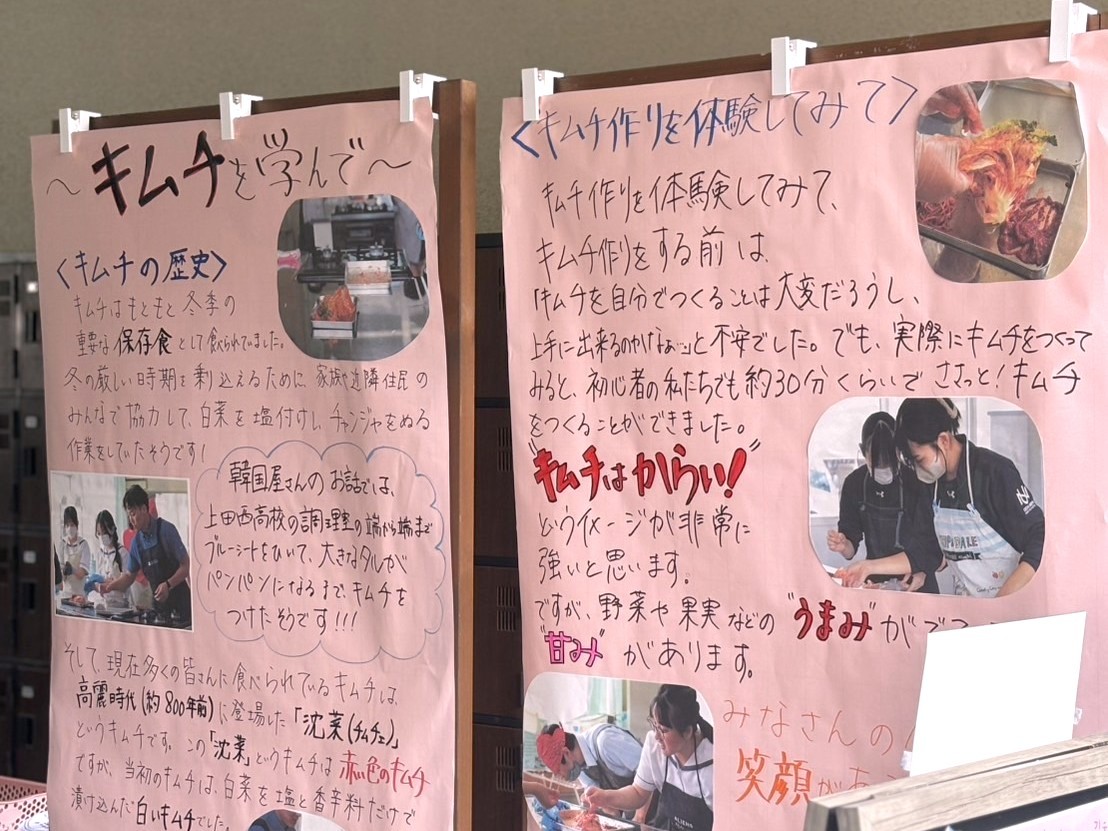 ～キムチを学んで～
〈キムチの歴史〉
キムチはもともと冬季の
重要な保存食として食べられていました。
冬の厳しい時期を乗り込えるために、家族や近隣住民の
みんなで協力して、白菜を塩付けし、チャンジャをぬる
作業をしていたそうです!
韓国屋さんのお話では、
上田西高校の調理室の端から端まで
ブルーシートをひいて、大きなタルが
パンパンになるまで、キムチを
つけたそうです!!!
そして、現在多くの皆さんに食べられているキムチは、
高麗時代(約800年前)に登場した「沈菜(チムチェ)」
というキムチです。この「沈菜」というキムチは赤色のキムチ
ですが、当初のキムチは、白菜を塩と香辛料だけで
漬け込んだ白いキムチでした。
〈キムチ作りを体験してみて〉
キムチ作りを体験してみて、
キムチ作りをする前は、
「キムチを自分でつくることは大変だろうし、
上手に出来るのかなぁ…」と不安でした。でも、実際にキムチをつくって
みると、初心者の私たちでも約30分くらいでささっと!キムチ
をつくることができました。
"キムチはからい!"
というイメージが非常に
強いと思います。
ですが、野菜や果実などの"うまみ"がで
"甘み"があります。
みなさんの
笑顔があ